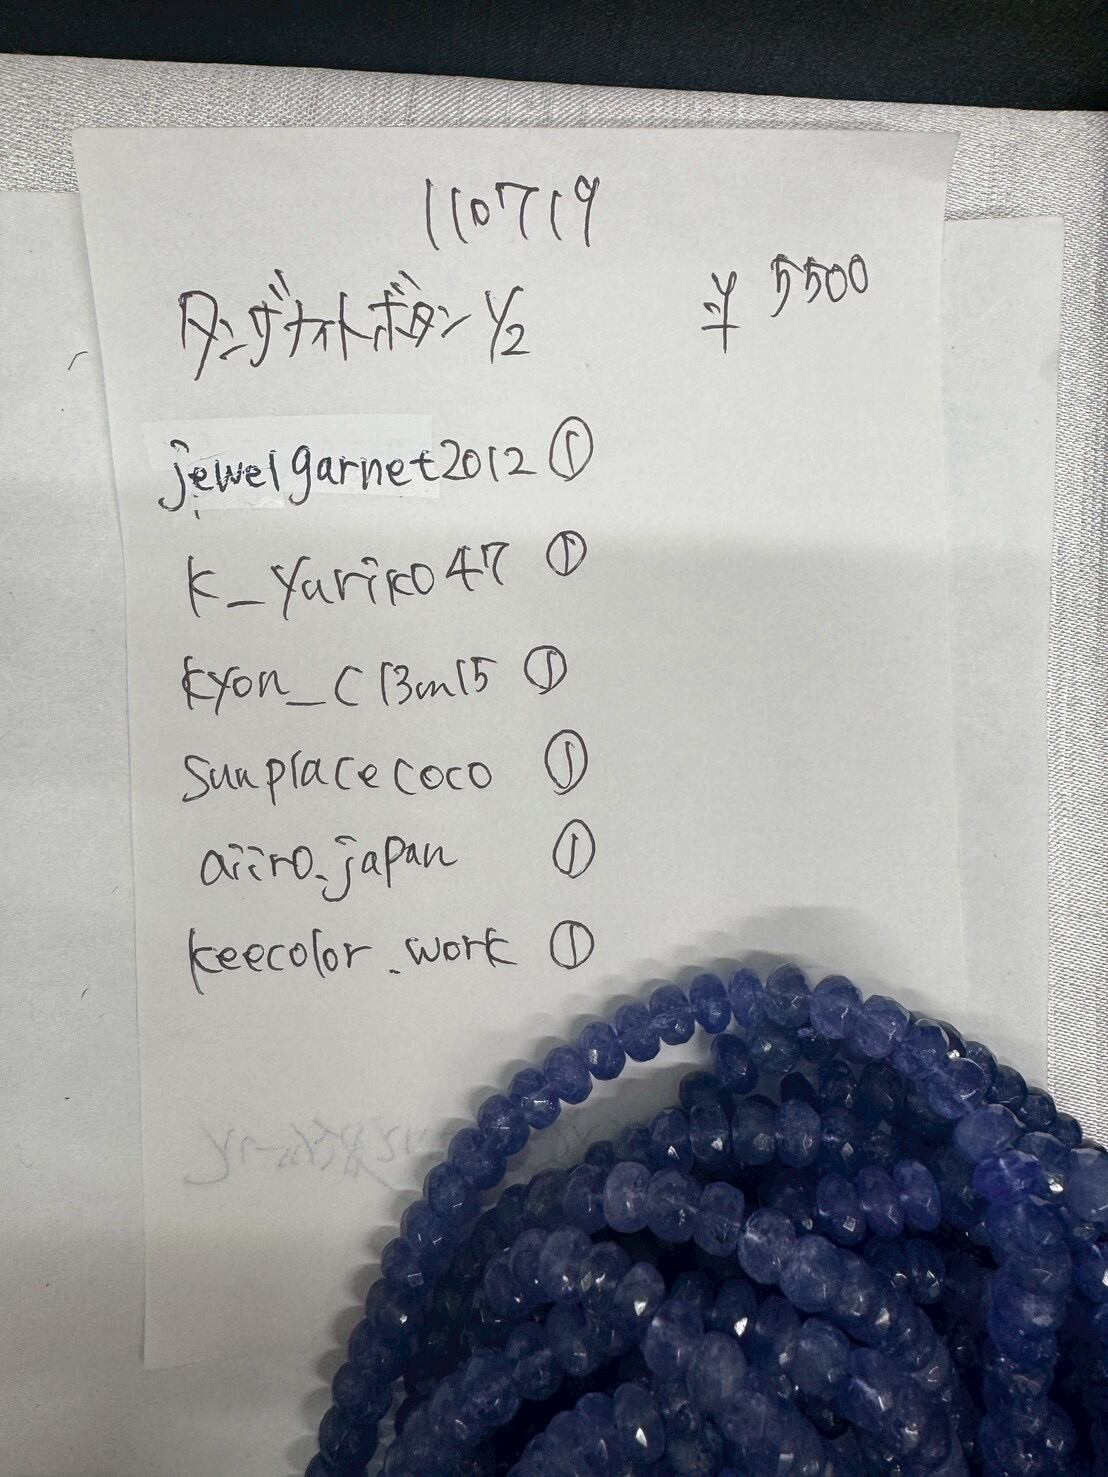 110719
タンザナイトボタン 1/2 ¥5500
jewelgarnet2012 ①
k_yuriko47 ①
kyon_c13m15 ①
sunplacecoco ①
aiiro.japan ①
keecolor.work ①